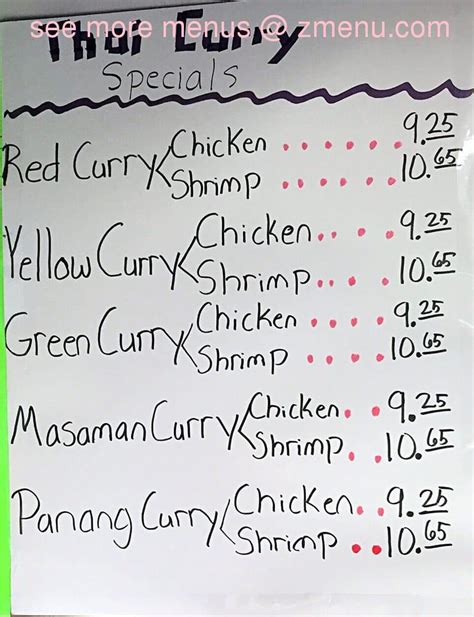 see more menus @ zmenu.com
Thai Curry
Specials
Red Curry Chicken ...... 9.25
Shrimp ...... 10.65
Yellow Curry Chicken.... 9.25
Shrimp.... 10.65
Green Curry Chicken .... 9.25
Shrimp .... 10.65
Masaman Curry Chicken. . 9.25
Shrimp. . 10.65
Panang Curry Chicken. . 9.25
Shrimp .. 10.65